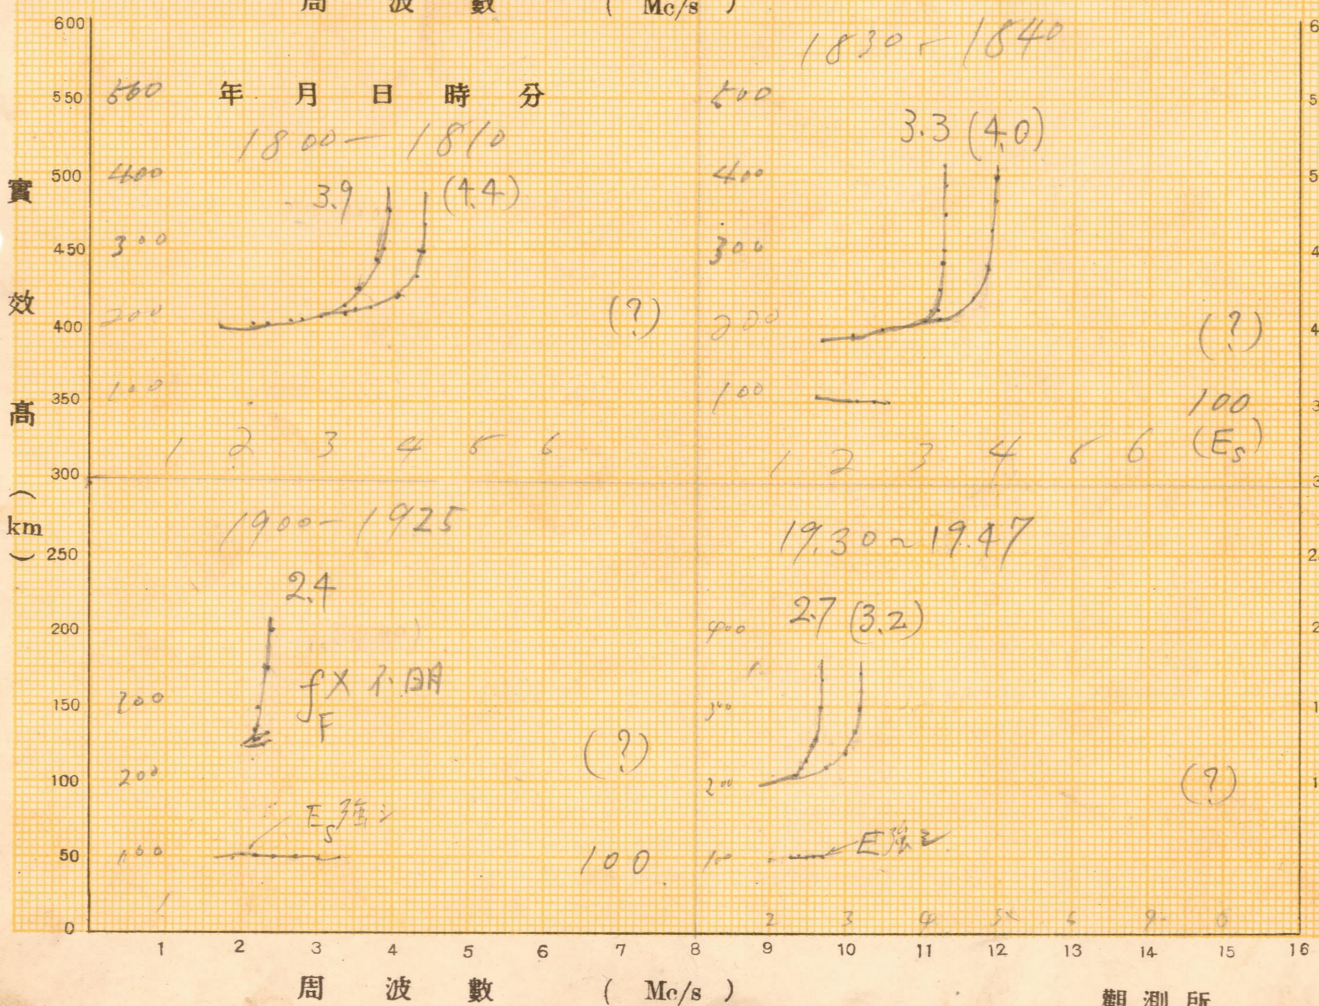 周 波 數 ( Mc/s )
600
550
500
450
400
350
300
250
200
150
100
50
0
實效高(km)
年 月 日 時 分
1800— 1810
3.9 (4.4)
500
400
300
200
100
(?)
1 2 3 4 5 6
1830 – 1840
3.3 (4.0)
500
400
300
200
100
(?)
100
(Es)
1 2 3 4 5 6
1900– 1925
2.4
fxF 不明
300
200
100
(?)
Es強シ
100
1
19.30~19.47
2.7 (3.2)
400
300
200
100
(?)
E強シ
2 3 4 5 6
1 2 3 4 5 6 7 8 9 10 11 12 13 14 15 16
周 波 數 ( Mc/s )
觀測所